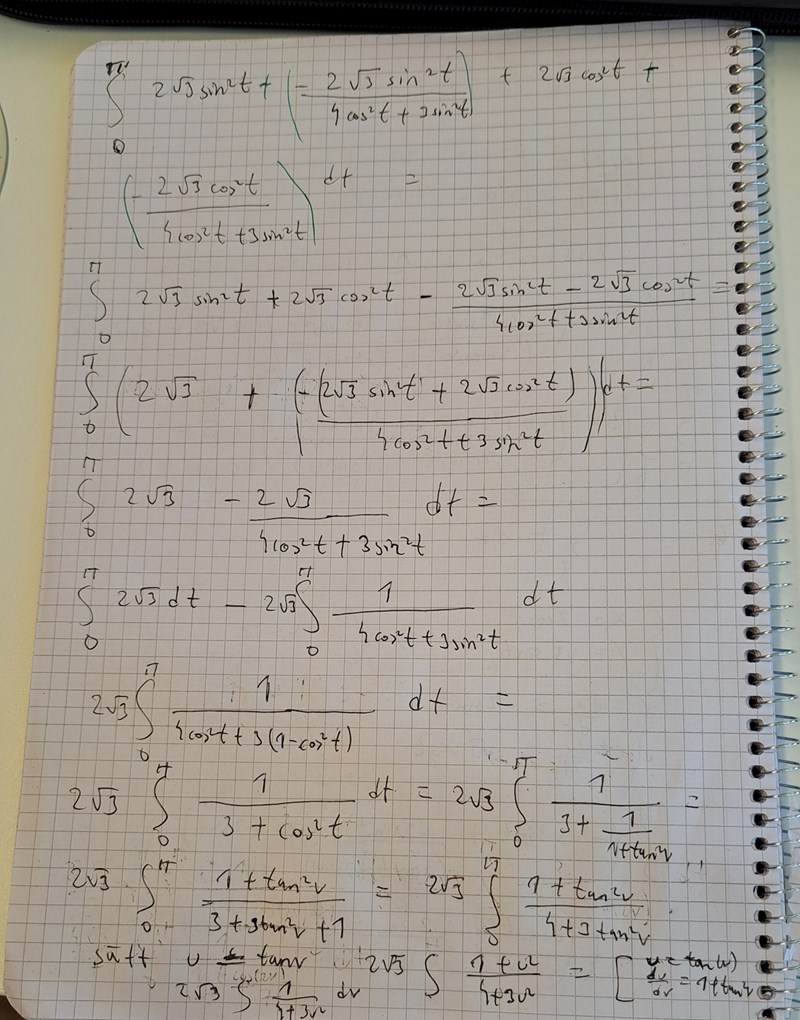 ∫₀^π 2√3 sin²t + (- 2√3 sin²t / (4cos²t + 3sin²t)) + 2√3 cos²t +
(- 2√3 cos²t / (4cos²t + 3sin²t)) dt =
∫₀^π 2√3 sin²t + 2√3 cos²t - (2√3 sin²t - 2√3 cos²t) / (4cos²t + 3sin²t) =
∫₀^π (2√3 + (- (2√3 sin²t + 2√3 cos²t) / (4cos²t + 3sin²t))) dt =
∫₀^π 2√3 - 2√3 / (4cos²t + 3sin²t) dt =
∫₀^π 2√3 dt - 2√3 ∫₀^π 1 / (4cos²t + 3sin²t) dt
2√3 ∫₀^π 1 / (4cos²t + 3(1-cos²t)) dt =
2√3 ∫₀^π 1 / (3 + cos²t) dt = 2√3 ∫₀^π 1 / (3 + 1 / (1+tan²v)) =
2√3 ∫₀^π (1+tan²v) / (3+3tan²v+1) = 2√3 ∫₀^π (1+tan²v) / (4+3tan²v)
sätt u = tanv 2√3 ∫ (1+u²) / (4+3u²) = [ u = tan(v) du/dv = 1+tan²v
2√3 ∫ 1 / (4+3u²) du